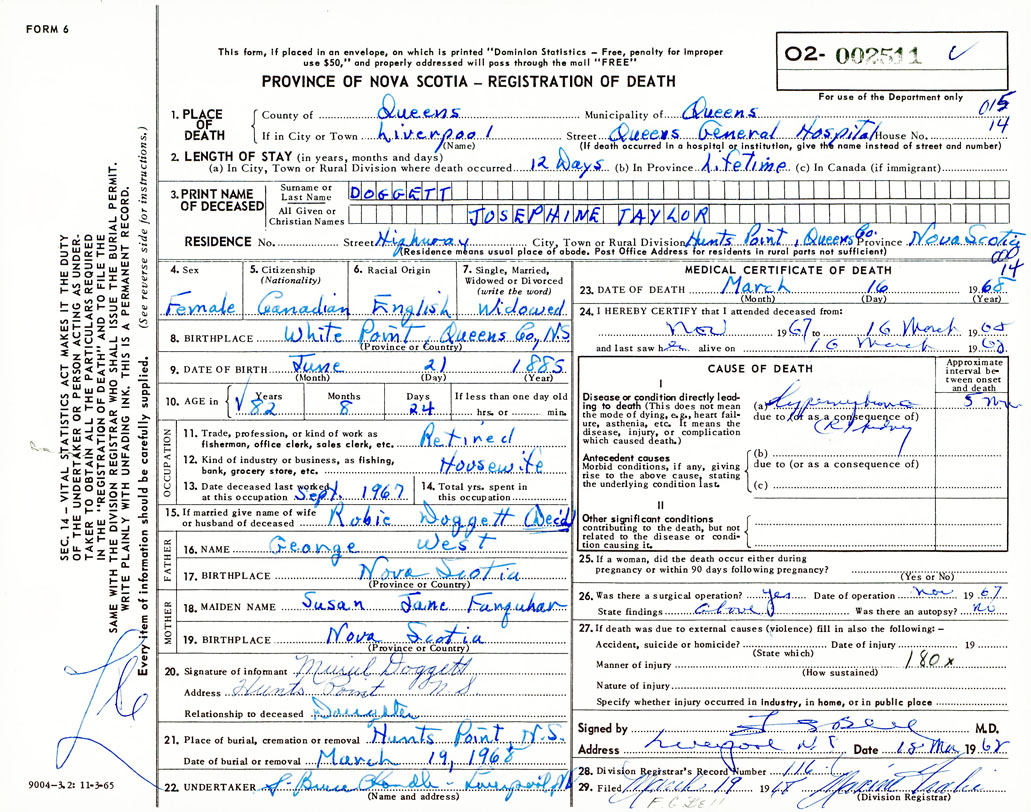 FORM 6
This form, if placed in an envelope, on which is printed "Dominion Statistics – Free, penalty for improper
use $50," and properly addressed will pass through the mail "FREE"
PROVINCE OF NOVA SCOTIA – REGISTRATION OF DEATH
02- 002511
For use of the Department only
015
14
1. PLACE OF DEATH
County of Queens Municipality of Queens
If in City or Town Liverpool Street Queens General Hospital House No.
(Name) (If death occurred in a hospital or institution, give the name instead of street and number)
2. LENGTH OF STAY (in years, months and days)
(a) In City, Town or Rural Division where death occurred 12 Days (b) In Province Lifetime (c) In Canada (if immigrant)
3. PRINT NAME OF DECEASED
Surname or Last Name DOGGETT
All Given or Christian Names JOSEPHINE TAYLOR
RESIDENCE No. Street Highway City, Town or Rural Division Hunts Point, Queens Co. Province Nova Scotia
(Residence means usual place of abode. Post Office Address for residents in rural parts not sufficient)
000
14
4. Sex Female
5. Citizenship (Nationality) Canadian
6. Racial Origin English
7. Single, Married, Widowed or Divorced (write the word) Widowed
8. BIRTHPLACE White Point, Queens Co, N.S.
(Province or Country)
9. DATE OF BIRTH June 21 1885
(Month) (Day) (Year)
10. AGE in Years 82 Months 8 Days 24 If less than one day old hrs. or min.
OCCUPATION
11. Trade, profession, or kind of work as fisherman, office clerk, sales clerk, etc. Retired
12. Kind of industry or business, as fishing, bank, grocery store, etc. Housewife
13. Date deceased last worked at this occupation Sept. 1967
14. Total yrs. spent in this occupation
15. If married give name of wife or husband of deceased Robie Doggett (Dec'd)
FATHER
16. NAME George West
17. BIRTHPLACE Nova Scotia
(Province or Country)
MOTHER
18. MAIDEN NAME Susan Jane Farquhar
19. BIRTHPLACE Nova Scotia
(Province or Country)
20. Signature of informant Muriel Doggett
Address Hunts Point N S
Relationship to deceased Daughter
21. Place of burial, cremation or removal Hunts Point, N.S.
Date of burial or removal March 19, 1968
22. UNDERTAKER Bruce Liverpool, NS
(Name and address)
MEDICAL CERTIFICATE OF DEATH
23. DATE OF DEATH March 16 1968
(Month) (Day) (Year)
24. I HEREBY CERTIFY that I attended deceased from:
Nov 1967 to 16 March 1968
and last saw her alive on 16 March 1968
CAUSE OF DEATH
Approximate interval between onset and death
I
Disease or condition directly leading to death (This does not mean the mode of dying, e.g., heart failure, asthenia, etc. It means the disease, injury, or complication which caused death.)
(a) Hypernephroma 5 mos
due to (or as a consequence of)
(R) Kidney
Antecedent causes
Morbid conditions, if any, giving rise to the above cause, stating the underlying condition last.
(b)
due to (or as a consequence of)
(c)
II
Other significant conditions
contributing to the death, but not related to the disease or condition causing it.
25. If a woman, did the death occur either during pregnancy or within 90 days following pregnancy?
(Yes or No)
26. Was there a surgical operation? yes Date of operation Nov 1967
State findings above Was there an autopsy? no
27. If death was due to external causes (violence) fill in also the following: –
Accident, suicide or homicide? Date of injury 19
(State which)
Manner of injury 180x
(How sustained)
Nature of injury
Specify whether injury occurred in industry, in home, or in public place
Signed by M.D.
Address Liverpool N.S. Date 18 Mar 1968
28. Division Registrar's Record Number 116
29. Filed March 19 1968
(Division Registrar)
F G Bell
SEC. 14 – VITAL STATISTICS ACT MAKES IT THE DUTY
OF THE UNDERTAKER OR PERSON ACTING AS UNDER-
TAKER TO OBTAIN ALL THE PARTICULARS REQUIRED
IN THE "REGISTRATION OF DEATH" AND TO FILE THE
SAME WITH THE DIVISION REGISTRAR WHO SHALL ISSUE THE BURIAL PERMIT.
WRITE PLAINLY WITH UNFADING INK. THIS IS A PERMANENT RECORD.
Every item of information should be carefully supplied. (See reverse side for instructions.)
9004-3.2: 11-3-65